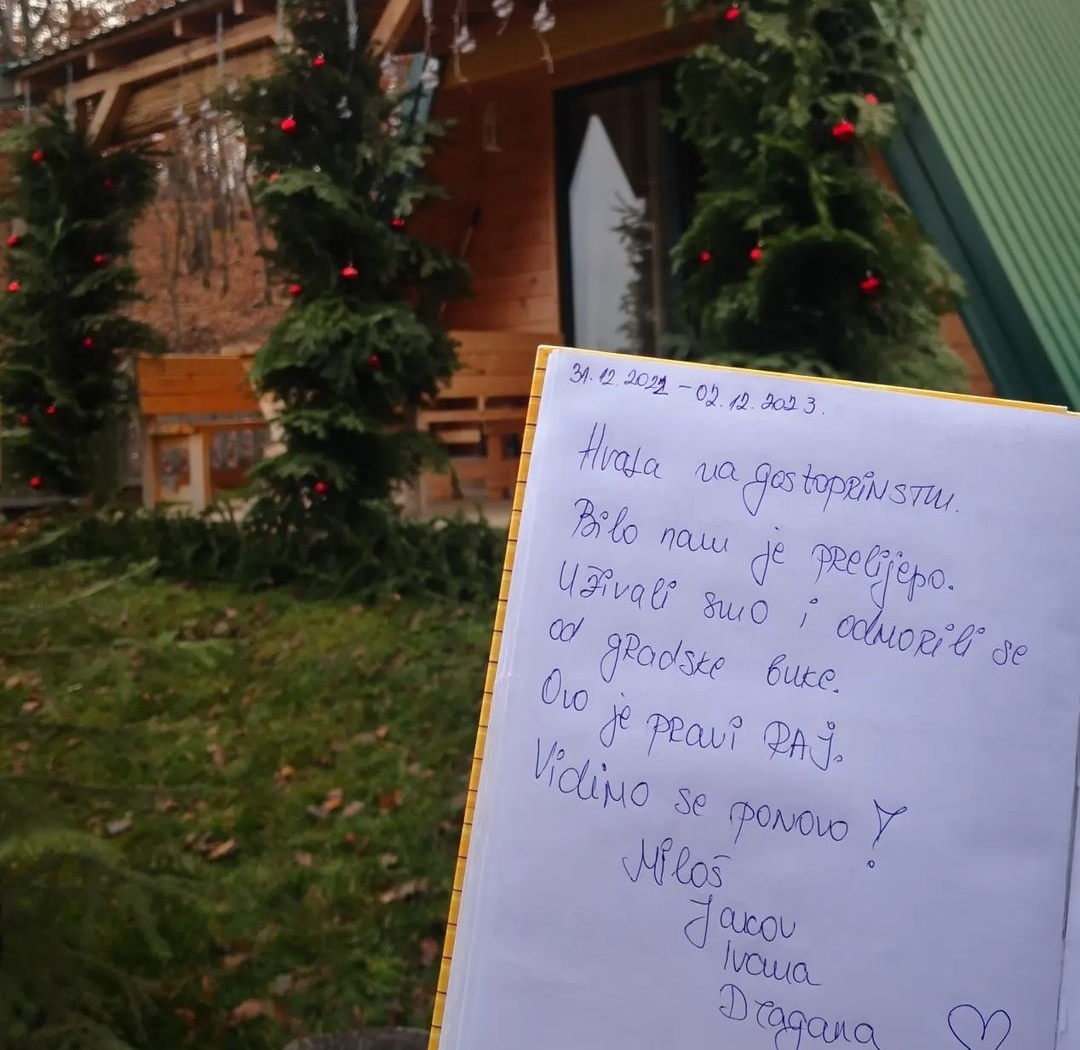 31.12.2022 - 02.12.2023.
Hvala na gostoprinstvu.
Bilo nam je prelijepo.
Uživali smo i odmorili se
od gradske buke.
Ovo je pravi RAJ.
Vidimo se ponovo!
Miloš
Jakov
Ivana
Dragana